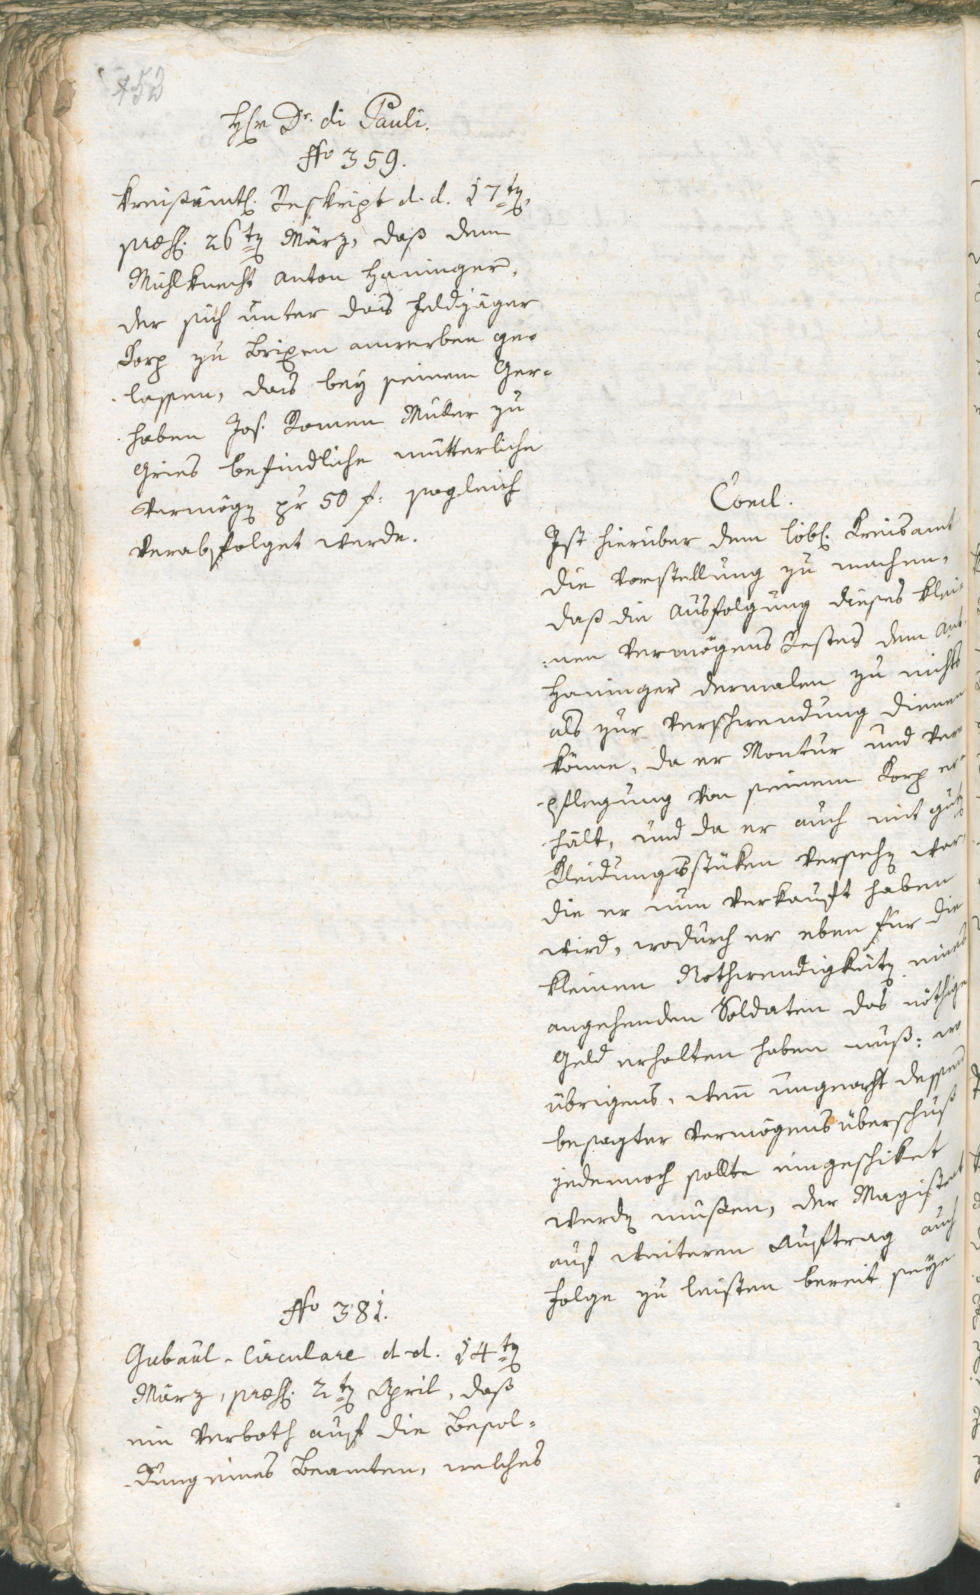 452
H[er]r Dr. di Pauli.
No 359.
Kreisämtl. Reskript d. d. 17ten,
præs. 26ten März, daß dem
Mühlknecht Anton Haninger,
der sich unter das Feldjäger
Korp zu Brixen anwerben ge-
lassen, das bey seinem Ger-
haben Jos. Ramen Müller zu
Gries befindliche mütterliche
Vermögen pr 50 f: sogleich
verabfolget werde.
Concl.
Ist hierüber dem löbl. Kreisamt
die Vorstellung zu machen,
daß die Ausfolgung dieses klei-
nen Vermögens Restes dem Ant
Haninger dermalen zu nichts
als zur Verschwendung dienen
könne, da er Montur und Ver-
pflegung von seinem Korp er-
hält, und da er auch mit guten
Kleidungsstüken versehen war,
die er nun verkauft haben
wird, wodurch er eben für die
kleinen Nothwendigkeiten eines
angehenden Soldaten das nöthige
Geld erhalten haben muß: wo
übrigens, wenn ungeacht dessen
besagter Vermögensüberschuß
jedennoch sollte eingeschiket
werden müßen, der Magistrat
auf weiteren Auftrag auch
Folge zu leisten bereit seye
No 381.
Gubaul-Circulare d. d. 14ten
März, præs. 2ten April, daß
ein Verboth auf die Besol-
dung eines Beamten, welches